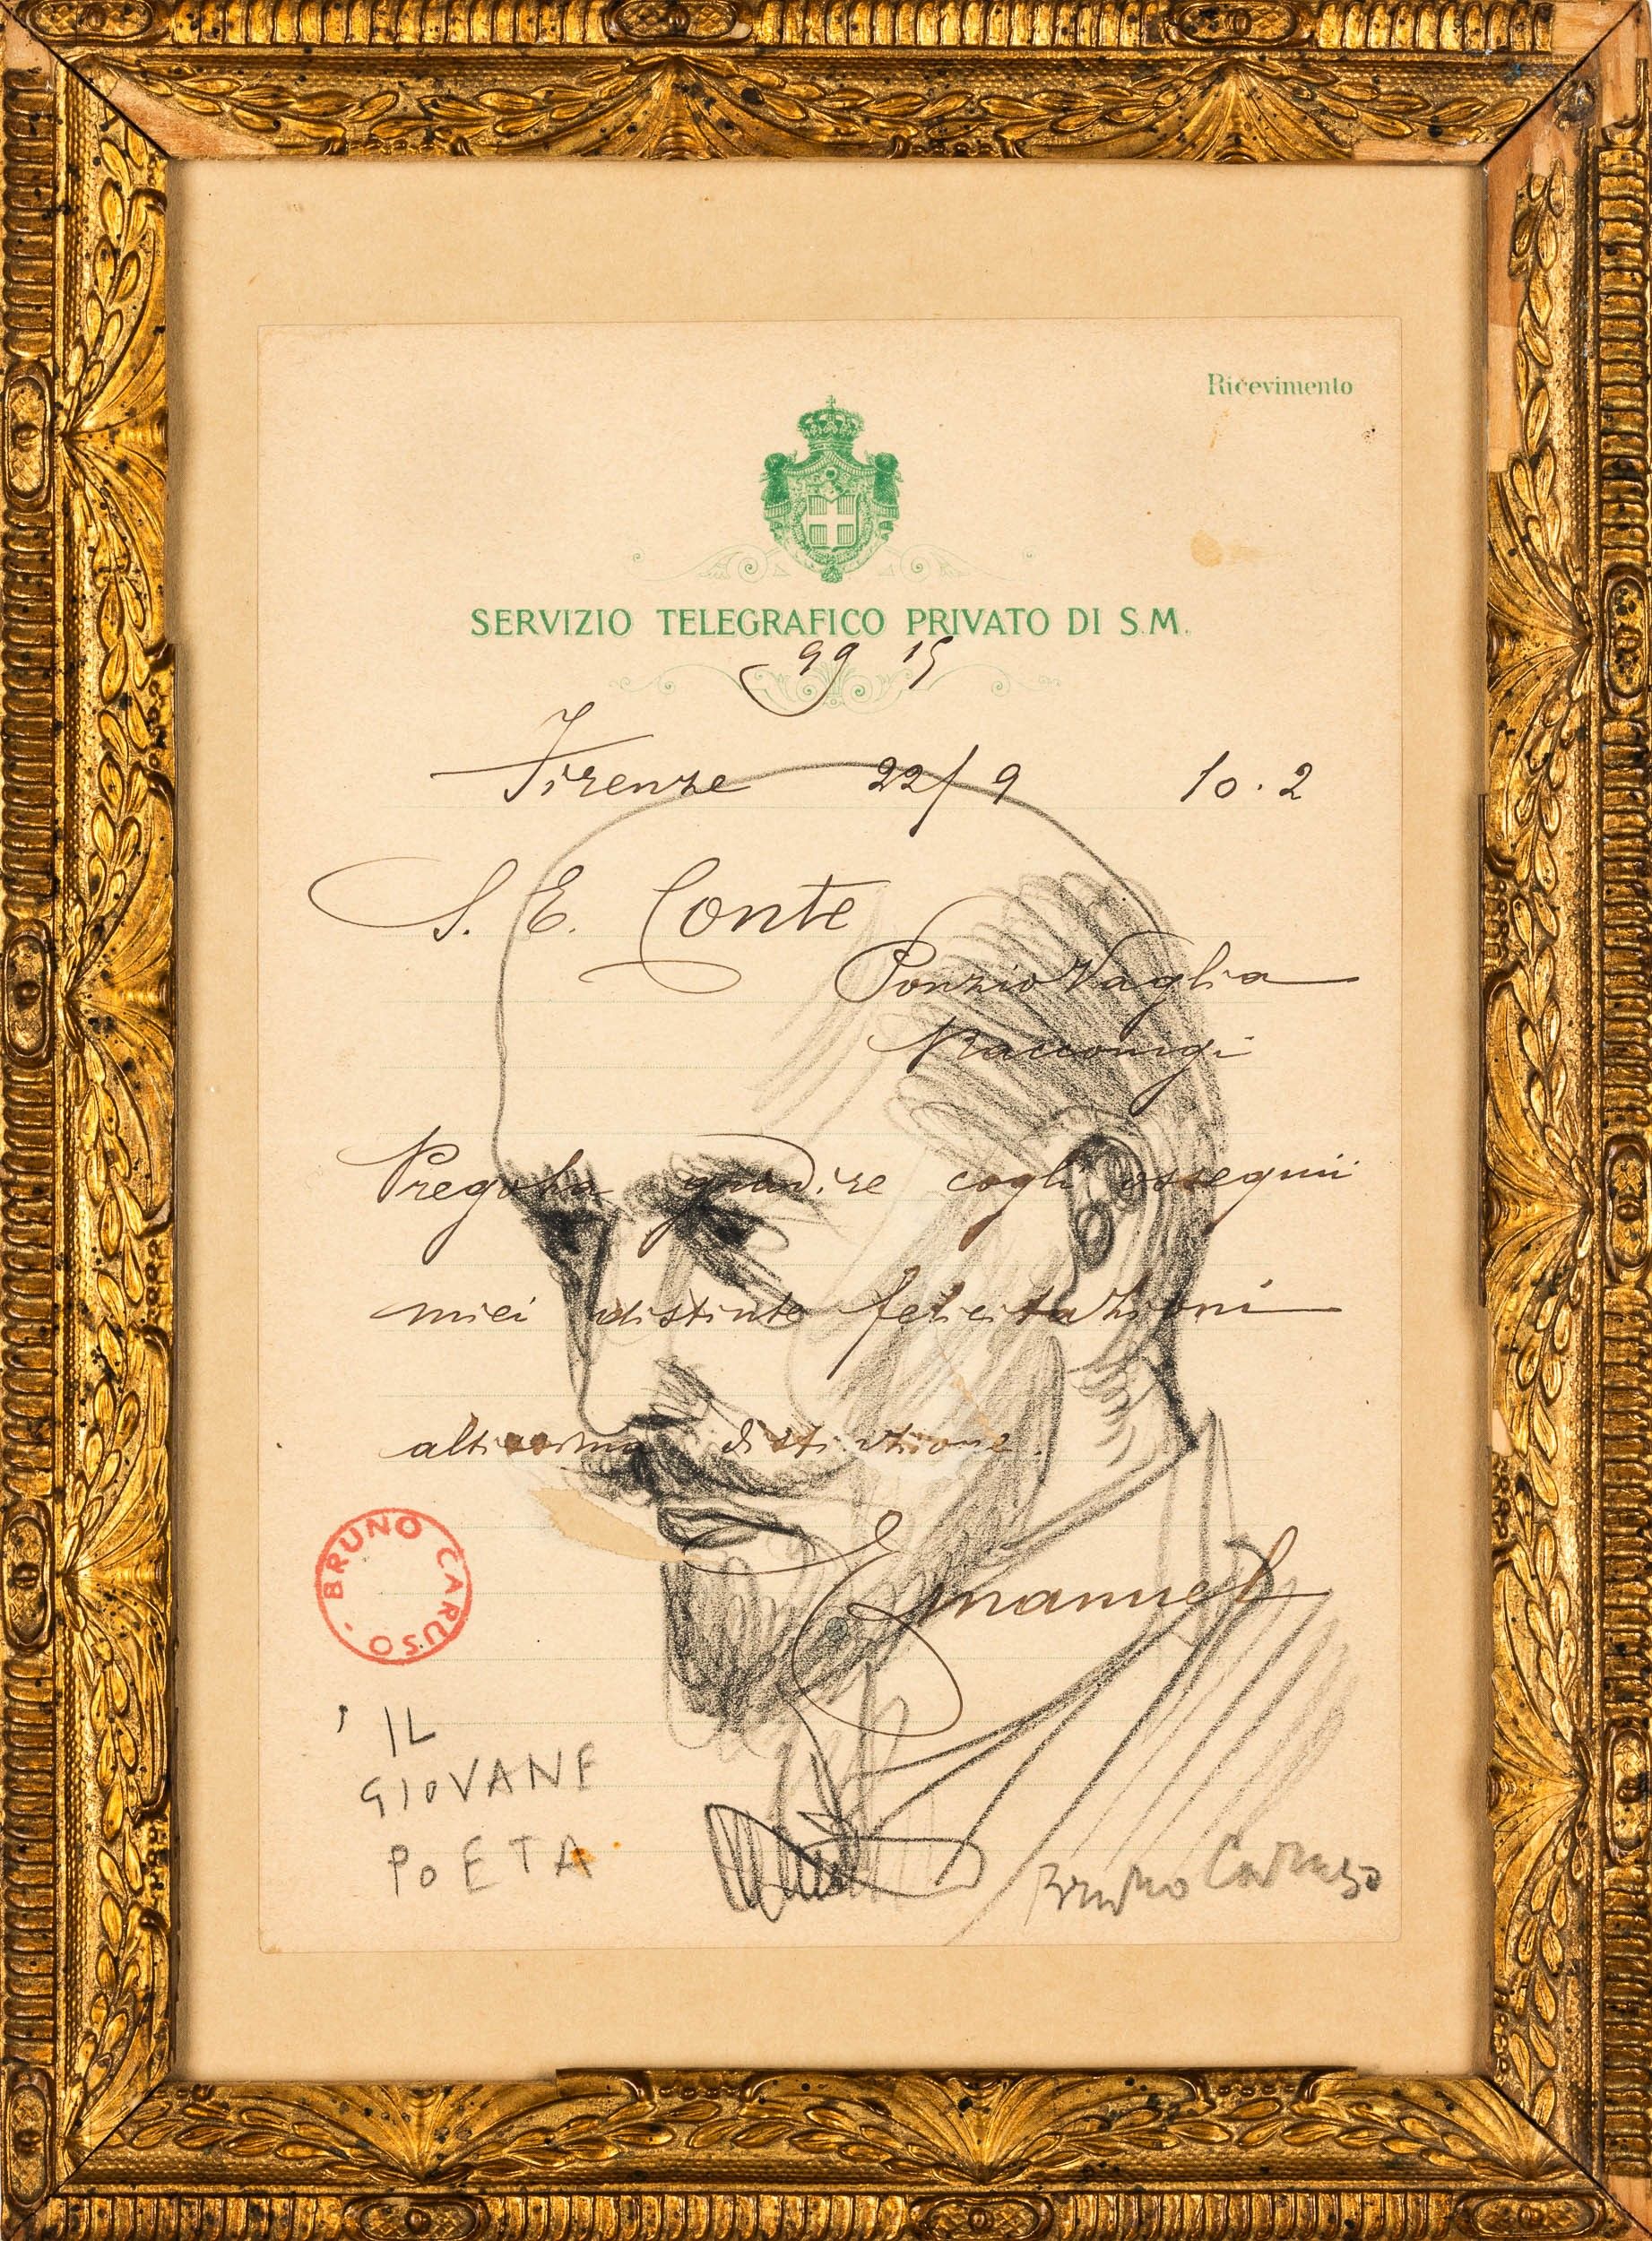 Ricevimento
SERVIZIO TELEGRAFICO PRIVATO DI S.M.
99 15
Firenze 22/9 10.2
S. E. Conte
Ponzio Vaglia
Racconigi
Pregola gradire cogli ossequii
miei distinte felicitazioni
altissima distinzione.
Emanuel
BRUNO CARUSO
IL
GIOVANE
POETA
Bruno Caruso